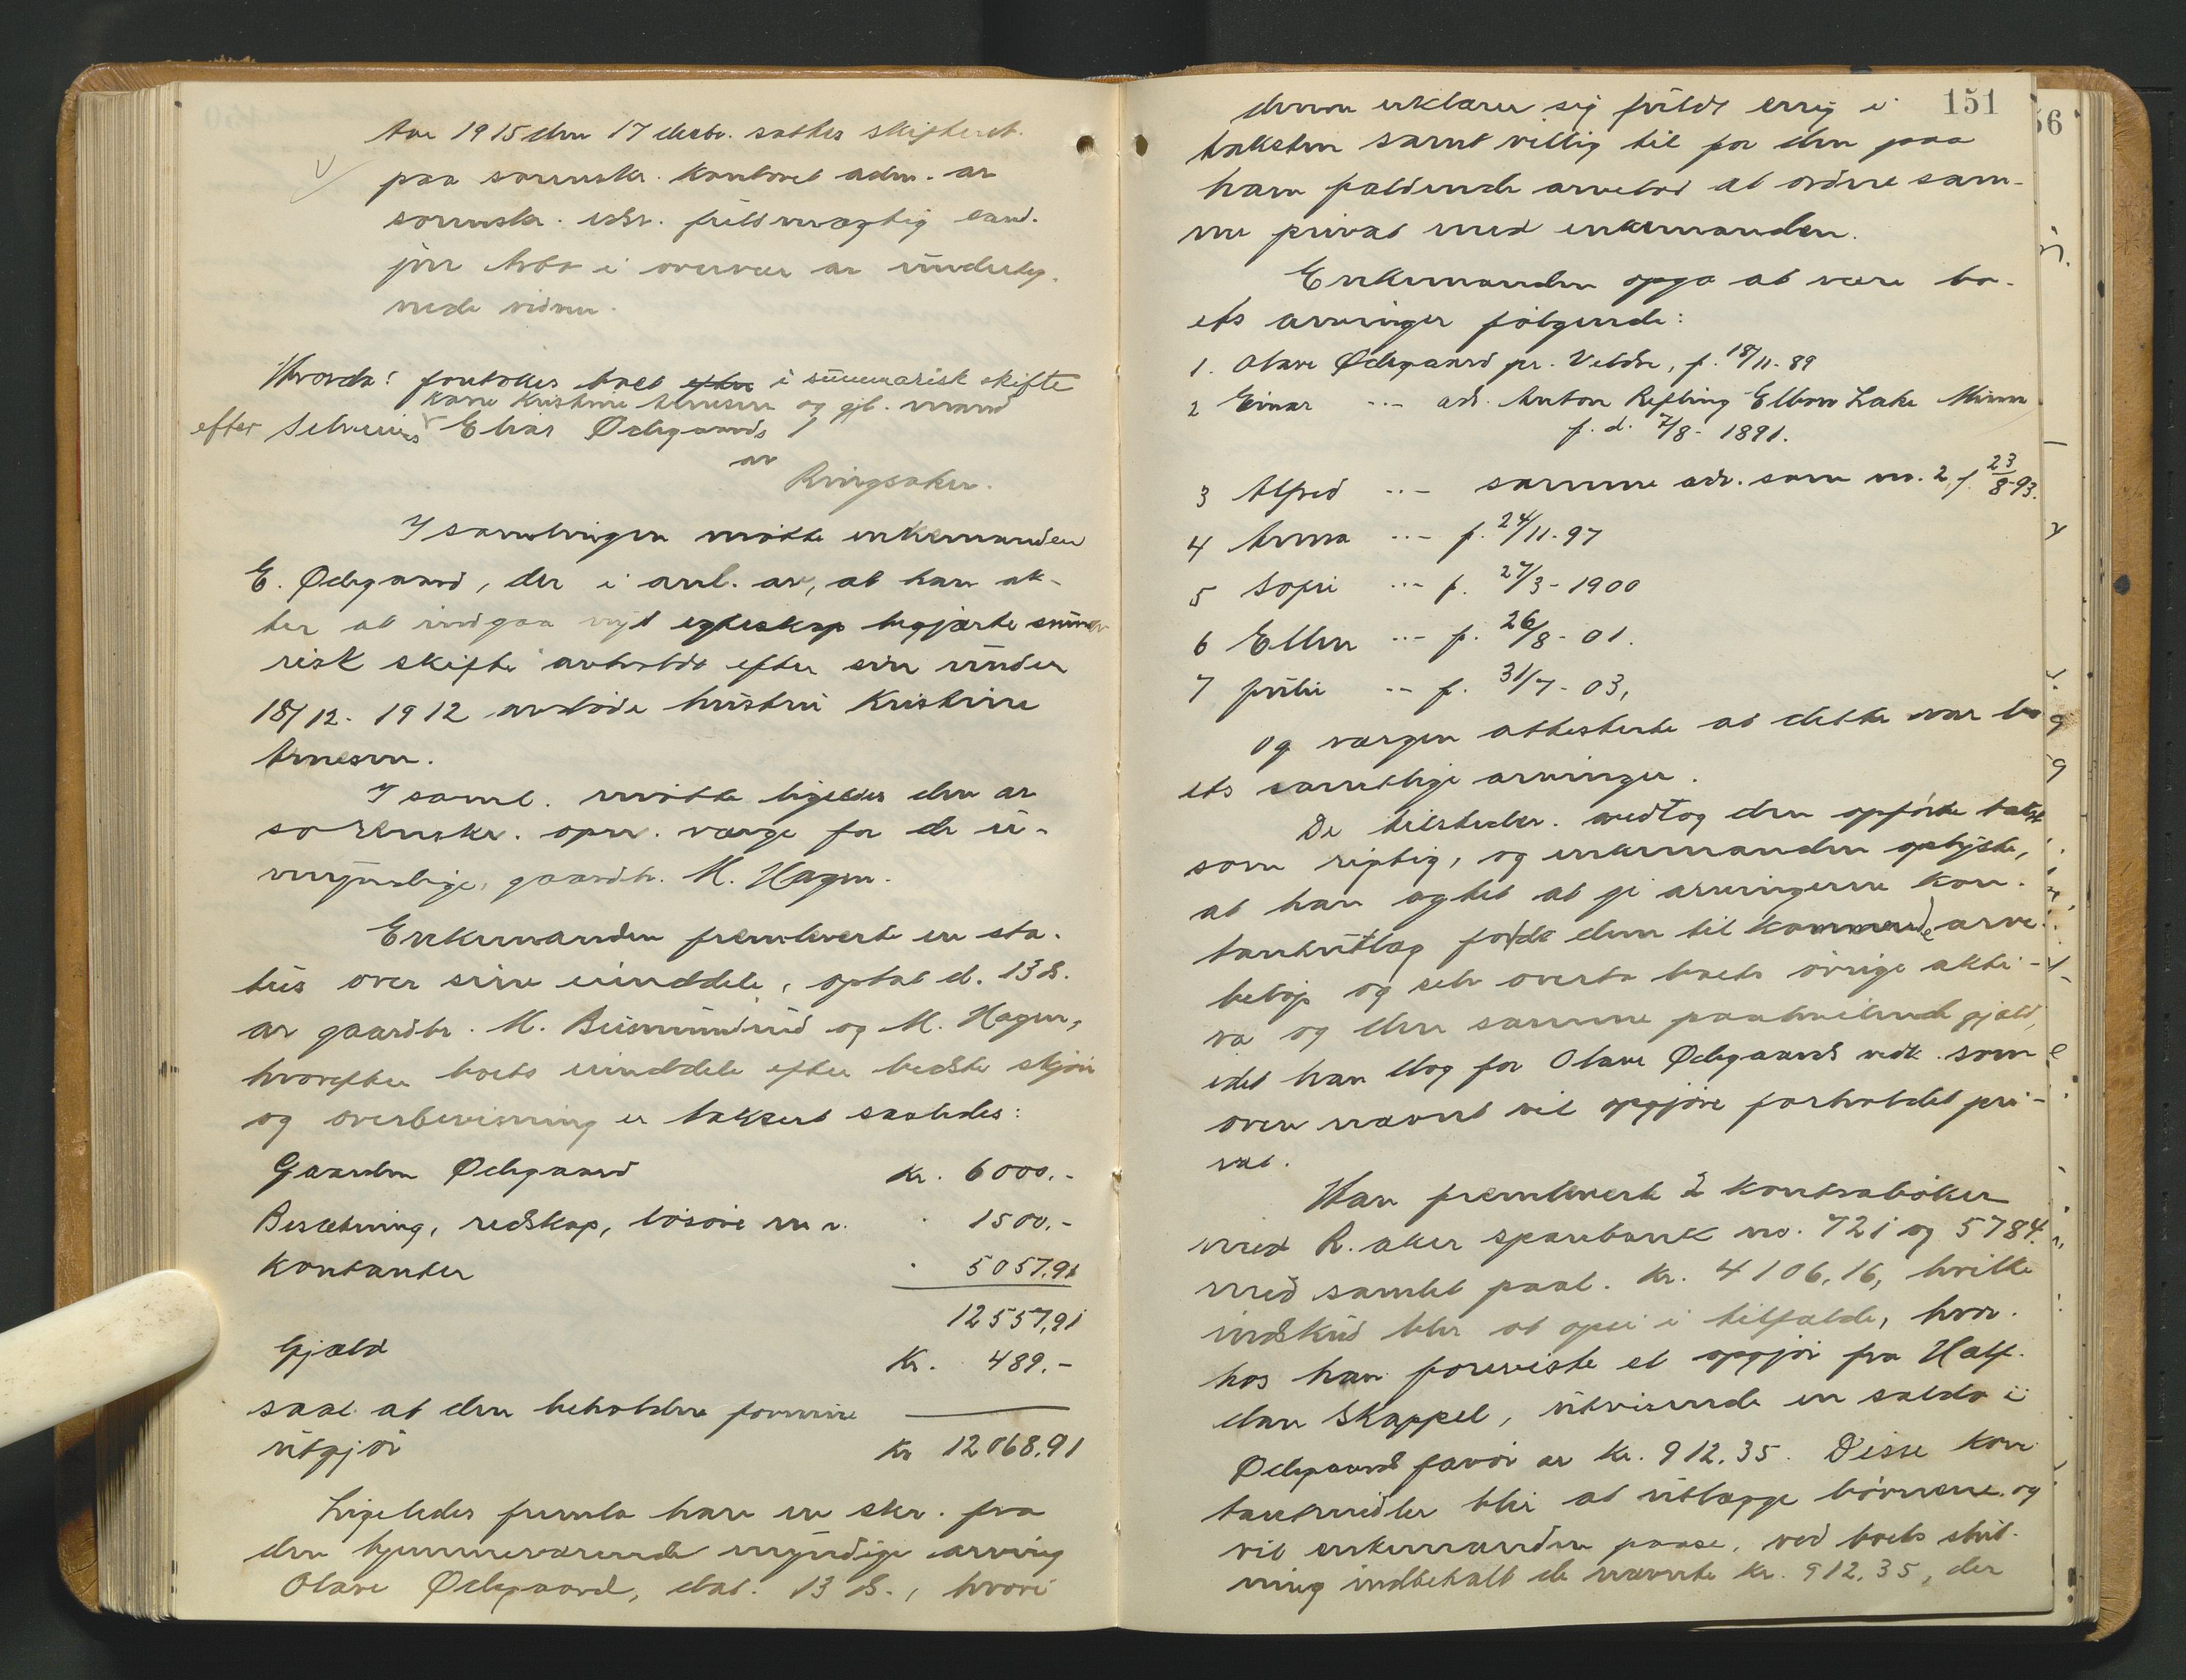 Aar 1915 den 17 decbr. sattes skifteret
paa sorenskr. kontoret adm. av
sorenskr. edsv. fuldmægtig cand.
jur. i overvær av underteg-
nede vidner.
Hvorda: foretokes boet efter i summarisk skifte
Karen Kristine Arnesen og gjl. mand
efter Elias Ødegaards
av
Ringsaker.
I samlingen møtte enkemanden
E. Ødegaard, der i anl. av, at han ak-
ter at indgaa nyt egteskap begjærte summa
risk skifte avholdt efter sin under
18/12. 1912 avdøde hustru Kristine
Arnesen.
I saml. møtte ligeledes den av
sorenskr. opn. værge for de u-
myndige, gaardbr. M. Hagen.
Enkemanden fremleverte en sta-
tus over sine eiendele, optat d. 13 ds.
av gaardbr. M. Bismundrud og M. Hagen,
hvorefter boets eiendele efter bedste skjøn
og overbevisning er taksert saaledes:
Gaarden Ødegaard kr. 6000.-
Besætning, redskap, løsøre m v. " 1500.-
Kontanter " 5057.91
12557,91
Gjæld Kr. 489.-
saal. at den beholdne formue
utgjør Kr 12068.91
Ligeledes fremla han en skr. fra
den hjemmeværende myndige arving
Olave Ødegaard, dat. 13 ds., hvori
151
56
denne erklærer sig fuldt enig i
taksten samt villig til for den paa
ham faldende arvelod at ordne sam-
me privat med enkemanden.
Enkemanden opga at være bo-
ets arvinger følgende:
1. Olave Ødegaard pr. Veldre, f. 18/11-89
2 Einar -"- adr. Anton Refling Elbow Lake Minn
f. d. 7/8- 1891.
3 Alfred -"- samme adr. som no. 2, f. 23/8-93.
4 Anna -"- f. 24/11-97
5 Sofie -"- f. 27/3-1900
6 Ellen -"- f. 26/8-01.
7 Julie -"- f. 31/7-03,
og værgen attesterte at dette var bo
ets samtlige arvinger.
De tilstedev. vedtog den opførte takst
som rigtig, og enkemanden oplyste,
at han agtet at gi arvingerne kon-
tantutlæg for det dem tilkommende arve-
beløp og selv overta boets øvrige akti-
va og den samme paahvilende gjæld,
idet han dog for Olave Ødegaards vedk. som
oven nævnt vil opgjøre forholdet pri-
vat.
Han fremleverte 2 kontrabøker
med R.aker sparebank no. 721 og 5784
med samlet paal. kr. 4106,16, hvilke
indskud blir at opsi i tilfælde, hvor-
hos han foreviste et opgjør fra Half-
dan Skappel, utvisende en saldo i
Ødegaards favør av kr. 912.35. Disse kon
tantmidler blir at utlægge børnene, og
vil enkemanden paase, ved boets slut-
ning indbetalt de nævnte kr. 912.35, der